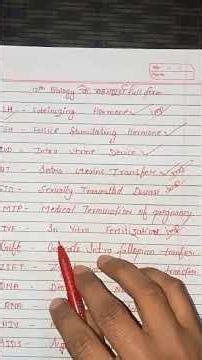 12th Biology के important full form
LH - Luteinizing Hormone
FSH - Follicle Stimulating Hormone
IUD - Intra Uterine Device
IUT - Intra Uterine Transfer
STD - Sexually Transmitted Disease
MTP - Medical Termination of pregnancy
IVF - In Vitro Fertilization
Gift - Gamete Intra fallopian transfer
ZIFT - transfer
DNA -
RNA
HIV
AIDS -